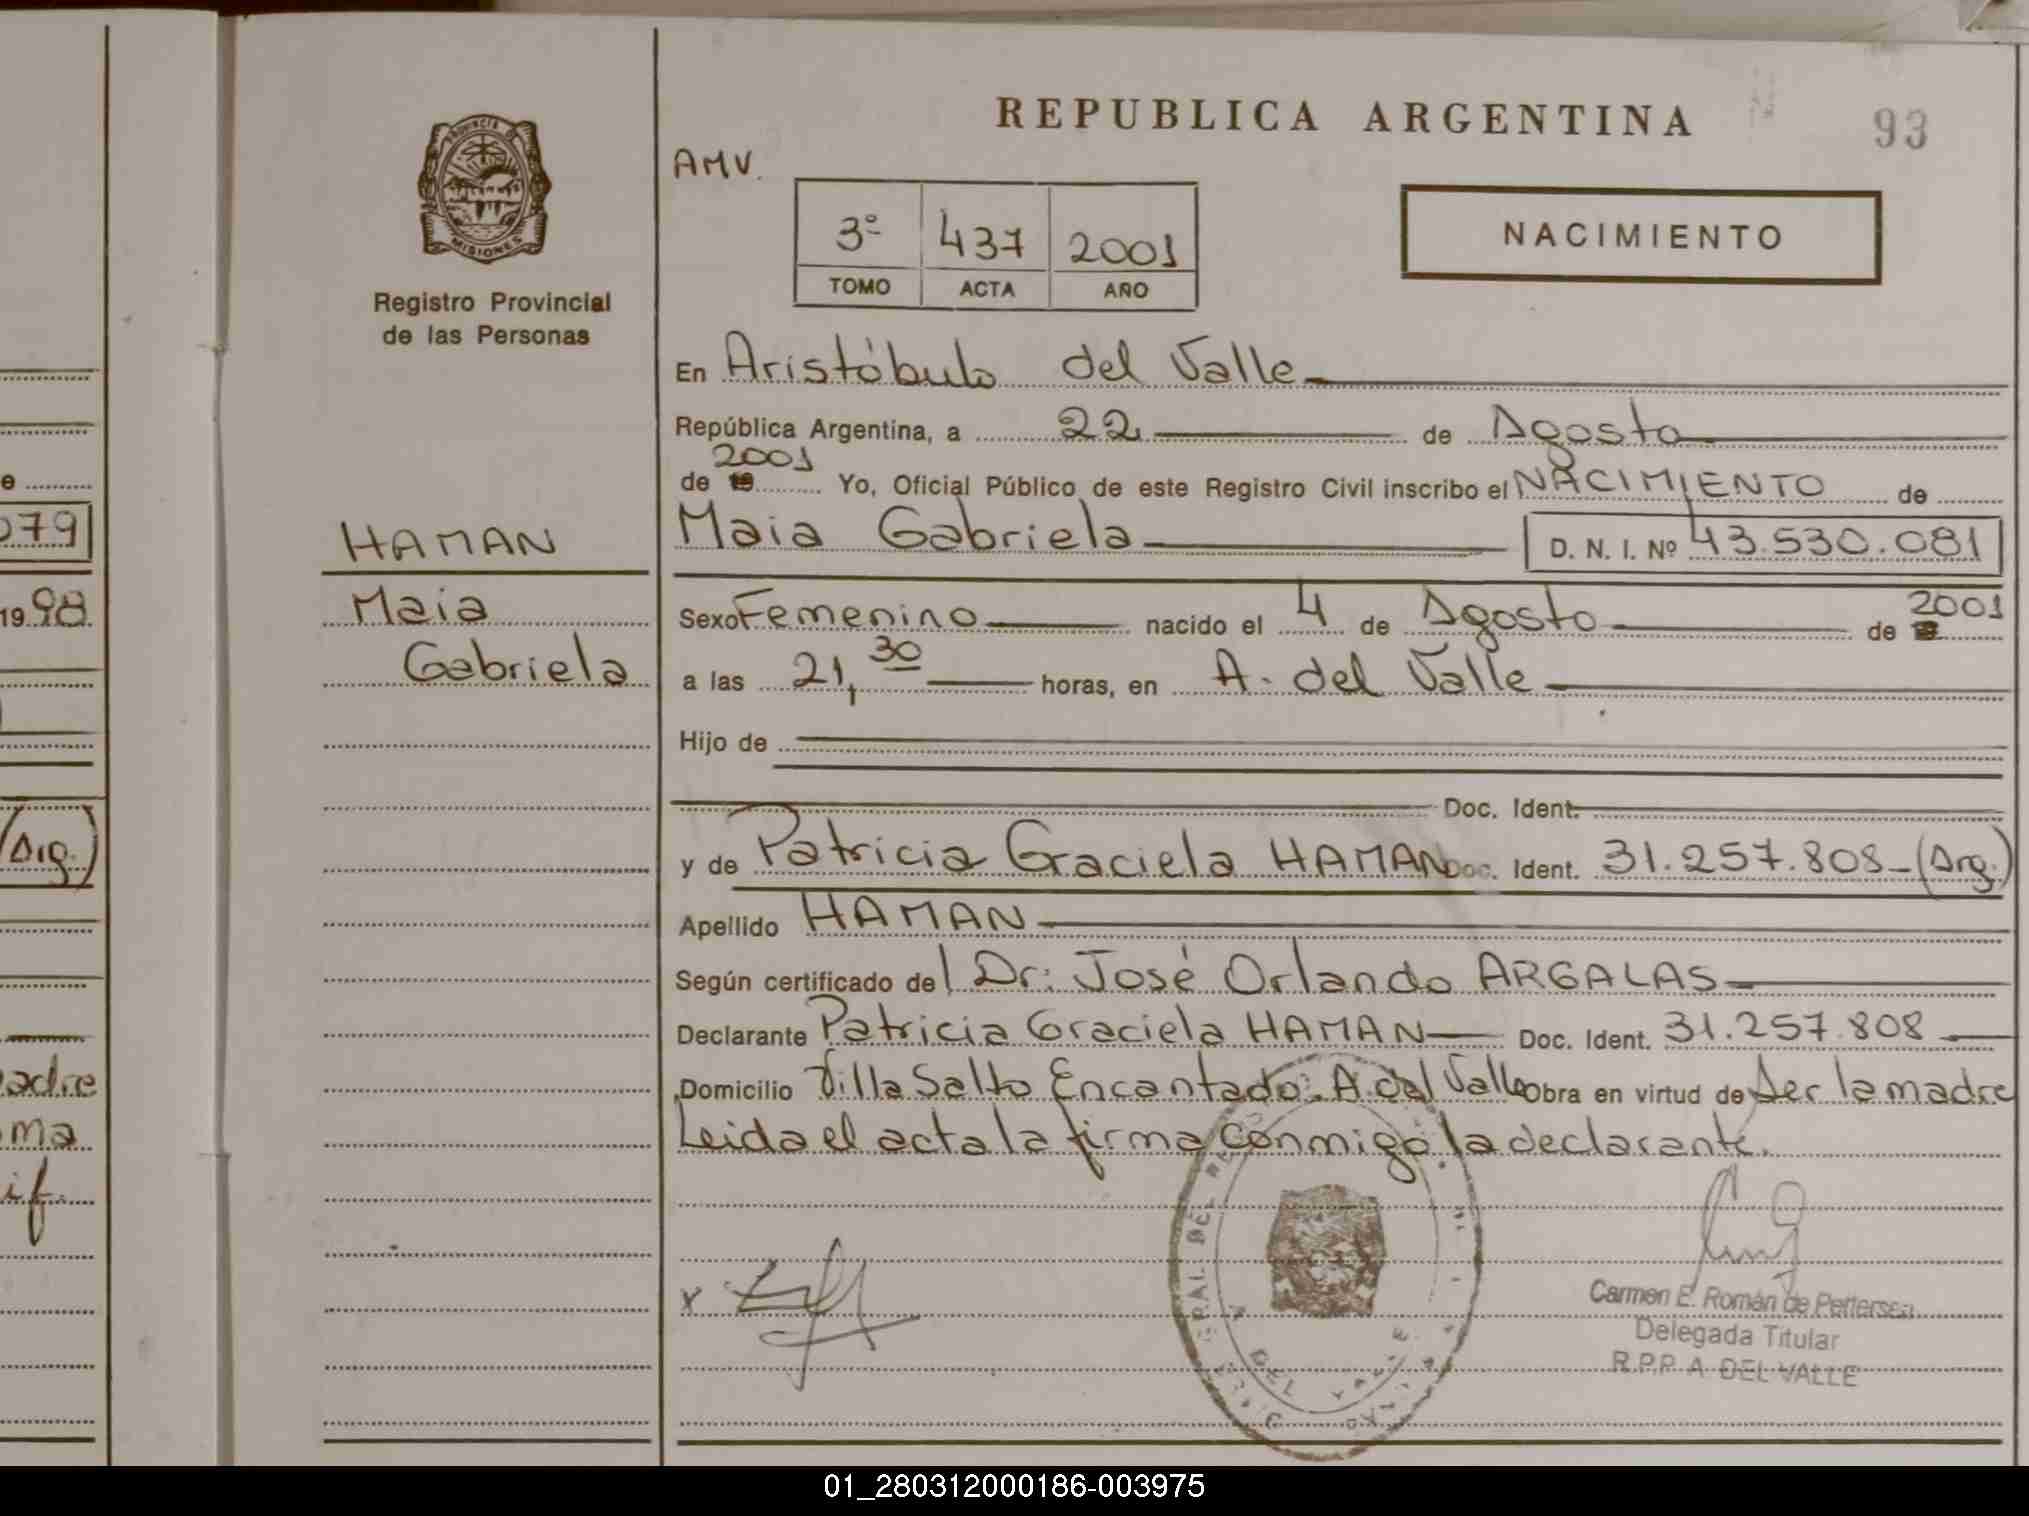 REPUBLICA ARGENTINA
93
PROVINCIA DE
MISIONES
Registro Provincial
de las Personas
AMV.
3º 437 2001
TOMO ACTA AÑO
NACIMIENTO
En Aristóbulo del Valle
República Argentina, a 22 de Agosto
2001
de 19 Yo, Oficial Público de este Registro Civil inscribo el NACIMIENTO de
Maia Gabriela D. N. I. Nº 43.530.081
HAMAN
Maia
Gabriela
Sexo Femenino nacido el 4 de Agosto de 2001
a las 21,30 horas, en A. del Valle
Hijo de
Doc. Ident.
y de Patricia Graciela HAMAN Doc. Ident. 31.257.808 (Arg.)
Apellido HAMAN
Según certificado del Dr: José Orlando ARGALAS
Declarante Patricia Graciela HAMAN Doc. Ident. 31.257.808
Domicilio Villa Salto Encantado. A. del Valle Obra en virtud de Ser la madre
Leida el acta la firma conmigo la declarante.
x
Carmen E. Román de Pettersen
Delegada Titular
R.P.P A. DEL VALLE
079
1998
(Arg.)
adre
ma
if.
01_280312000186-003975